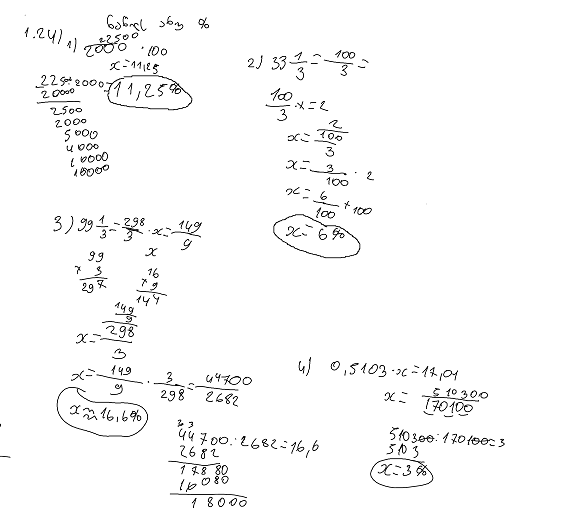 ნაწილს აწევ %
1.24) 1) 22500/2000 · 100
x=11,25
22500:2000=11,25%
20000
2500
2000
5000
4000
10000
10000
2) 33 1/3 = 100/3 =
100/3 · x = 2
x = 2/(100/3)
x = 3/100 · 2
x = 6/100 * 100
x = 6%
3) 99 1/3 = 298/3 · x = 149/9
x
99
× 3
297
16
× 9
144
x = (149/9)/(298/3)
x = 149/9 · 3/298 = 44700/2682
x ≈ 16,6%
44700:2682=16,6
2682
17880
16080
18000
4) 0,5103·x=17,01
x = 510300/170100
510300:170100=3
5103
x=3%